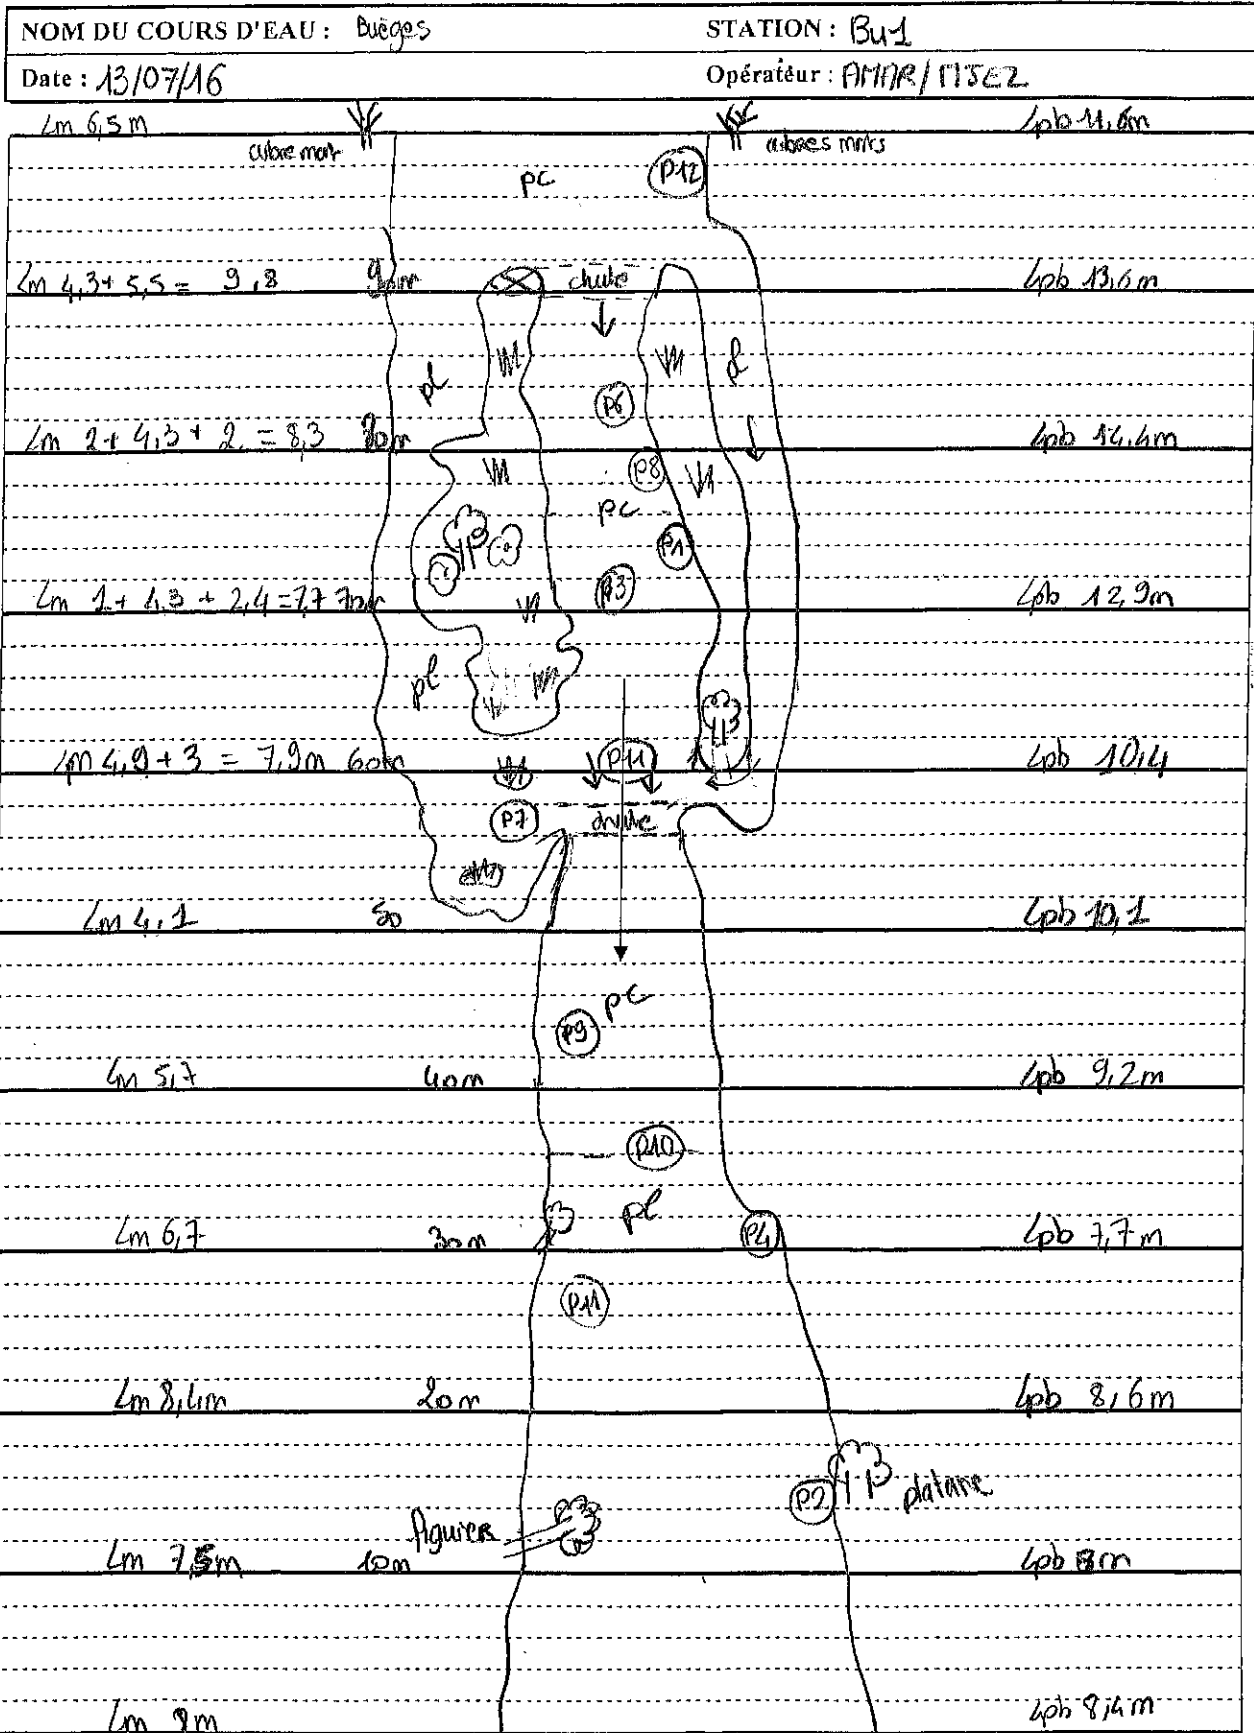 NOM DU COURS D'EAU : Buèges STATION : Bu1
Date : 13/07/16 Opérateur :
Lm 6,5m Lpb 11,6m
arbre mort arbres morts
pc P12
Lm 4,3+ 5,5 = 9,8 90m chute Lpb 13,6m
pl pl
P6
Lm 2+ 4,3 + 2 = 8,3 80m Lpb 14,4m
P8
pc
P1
P3
Lm 1+ 4,3 + 2,4 = 7,7 70m Lpb 12,9m
pl
Lm 4,9 + 3 = 7,9m 60m P11 Lpb 10,4
P7 chute
Lm 4,1 50 Lpb 10,1
pc
P9
Lm 5,7 40m Lpb 9,2m
P10
pl
Lm 6,7 30m P4 Lpb 7,7m
P11
Lm 8,4m 20m Lpb 8,6m
P2 platane
figuier
Lm 7,5m 10m Lpb 8m
Lm 8m Lpb 8,4m